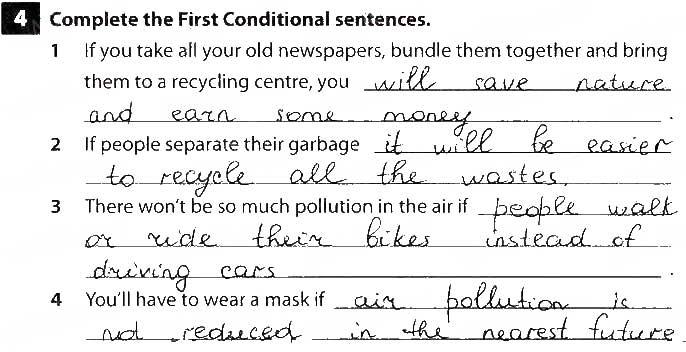 4 Complete the First Conditional sentences.
1 If you take all your old newspapers, bundle them together and bring
them to a recycling centre, you will save nature
and earn some money.
2 If people separate their garbage it will be easier
to recycle all the wastes.
3 There won't be so much pollution in the air if people walk
or ride their bikes instead of
driving cars.
4 You'll have to wear a mask if air pollution is
not reduced in the nearest future